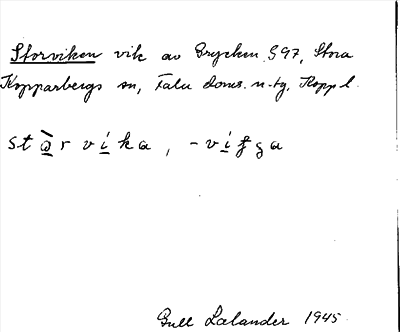 Storviken vik av Grycken S 97, Stora
Kopparbergs sn, Falu doms.-tg, Koppl.
stòrvika, -vi
Gull Lælander 1945.